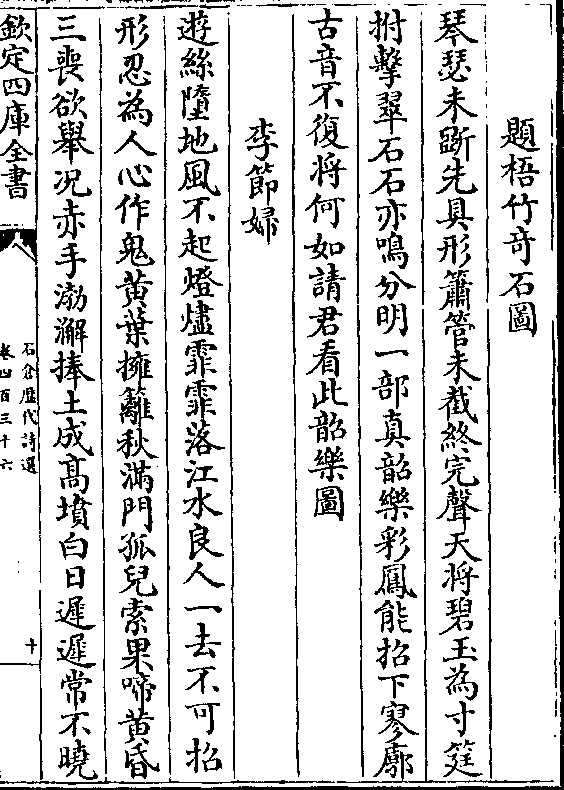 題梧竹奇石圖
琴瑟未斲先具形簫管未截終完聲天将碧玉為寸筳
拊擊翠石石亦鳴分明一部真韶樂彩鳳能招下寥廓
古音不復将何如請君看此韶樂圖
李節婦
遊絲墮地風不起燈燼霏霏落江水良人一去不可招
形忍為人心作鬼黃葉擁籬秋滿門孤兒索果啼黃昏
三喪欲舉况赤手渤澥捧土成髙墳白日遲遲常不曉
欽定四庫全書
石倉歴代詩選
卷四百三十六
十